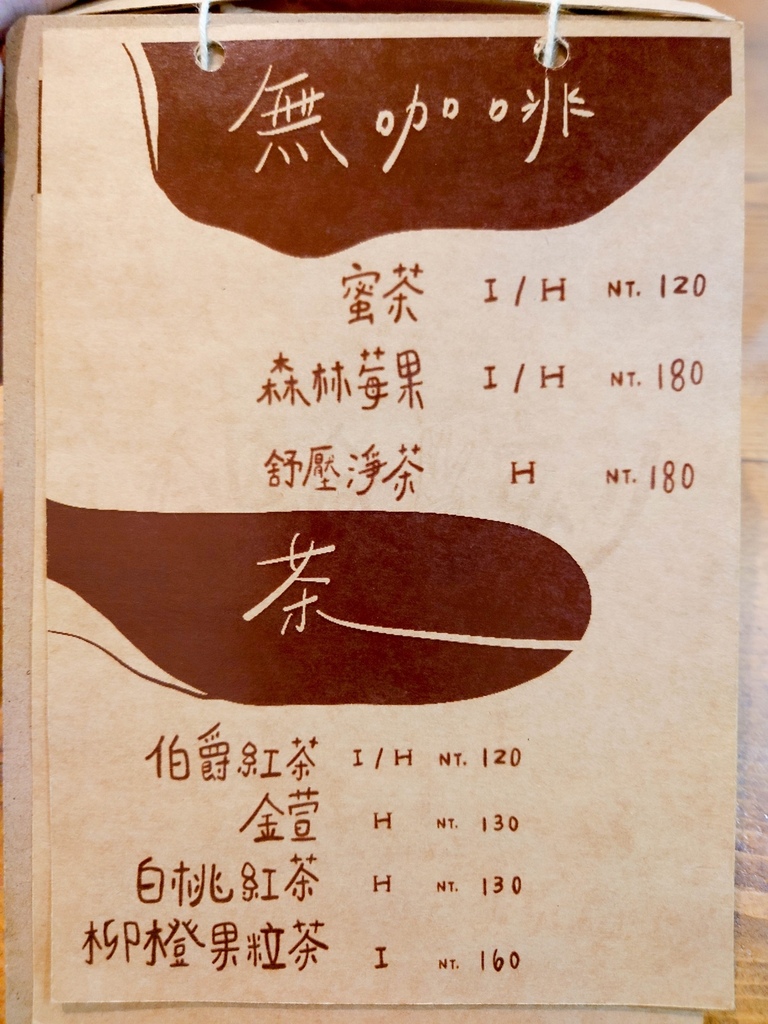 無咖啡
蜜茶 I/H NT. 120
森林莓果 I/H NT. 180
舒壓淨茶 H NT. 180
茶
伯爵紅茶 I/H NT. 120
金萱 H NT. 130
白桃紅茶 H NT. 130
柳橙果粒茶 I NT. 160